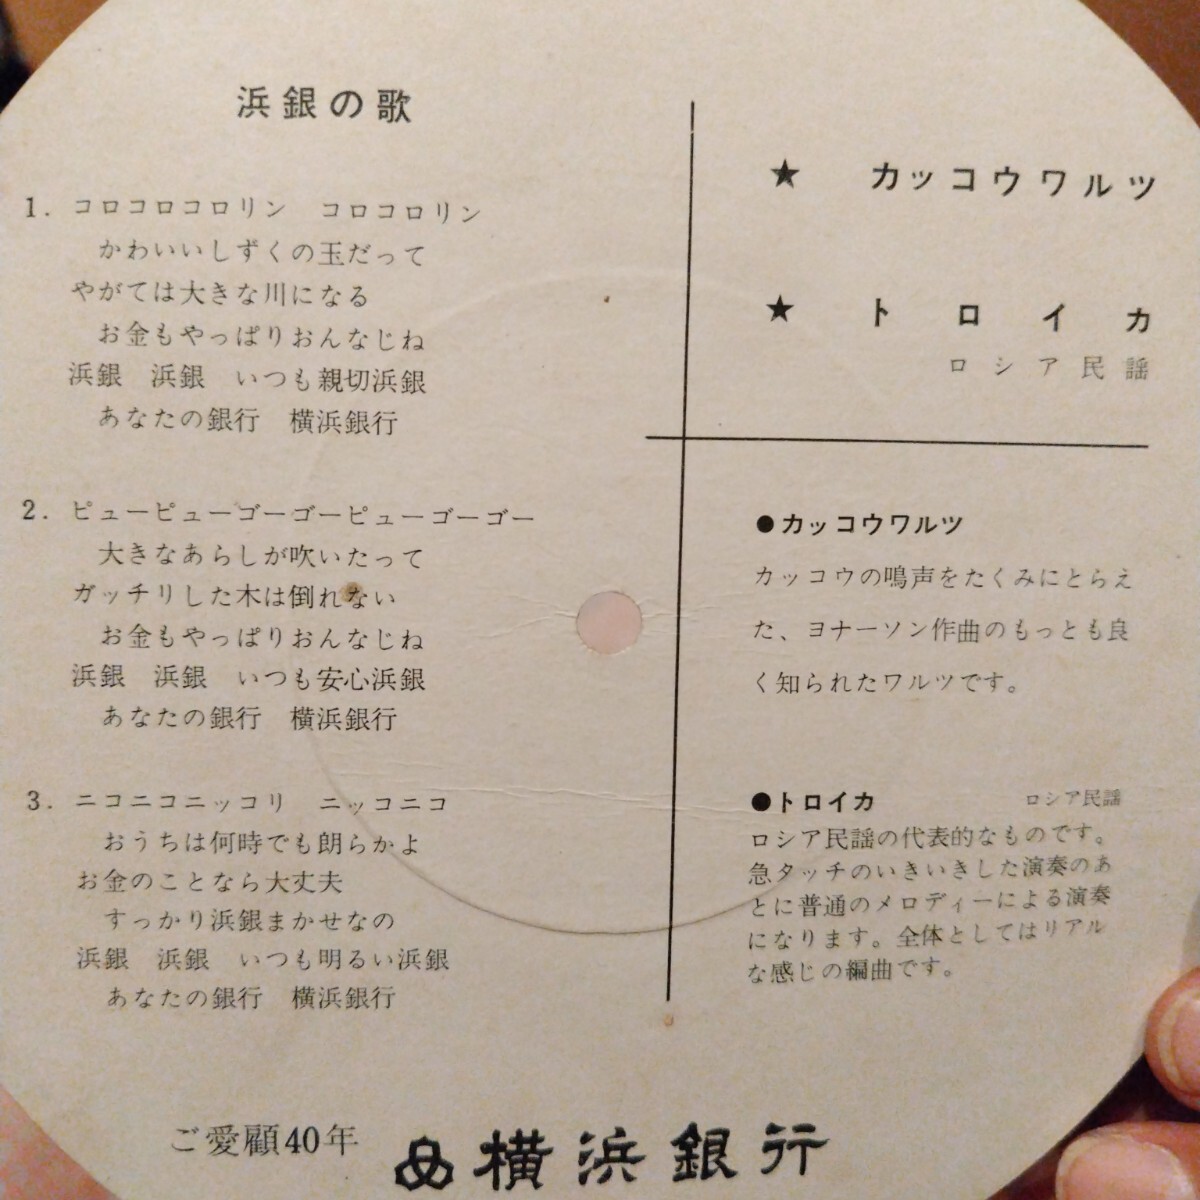 浜銀の歌
1. コロコロコロリン　コロコロリン
かわいいしずくの玉だって
やがては大きな川になる
お金もやっぱりおんなじね
浜銀　浜銀　いつも親切浜銀
あなたの銀行　横浜銀行
2. ピューピューゴーゴーピューゴーゴー
大きなあらしが吹いたって
ガッチリした木は倒れない
お金もやっぱりおんなじね
浜銀　浜銀　いつも安心浜銀
あなたの銀行　横浜銀行
3. ニコニコニッコリ　ニッコニコ
おうちは何時でも朗らかよ
お金のことなら大丈夫
すっかり浜銀まかせなの
浜銀　浜銀　いつも明るい浜銀
あなたの銀行　横浜銀行
★　カッコウワルツ
★　トロイカ
ロシア民謡
●カッコウワルツ
カッコウの鳴声をたくみにとらえ
た、ヨナーソン作曲のもっとも良
く知られたワルツです。
●トロイカ　ロシア民謡
ロシア民謡の代表的なものです。
急タッチのいきいきした演奏のあ
とに普通のメロディーによる演奏
になります。全体としてはリアル
な感じの編曲です。
ご愛顧40年
横浜銀行